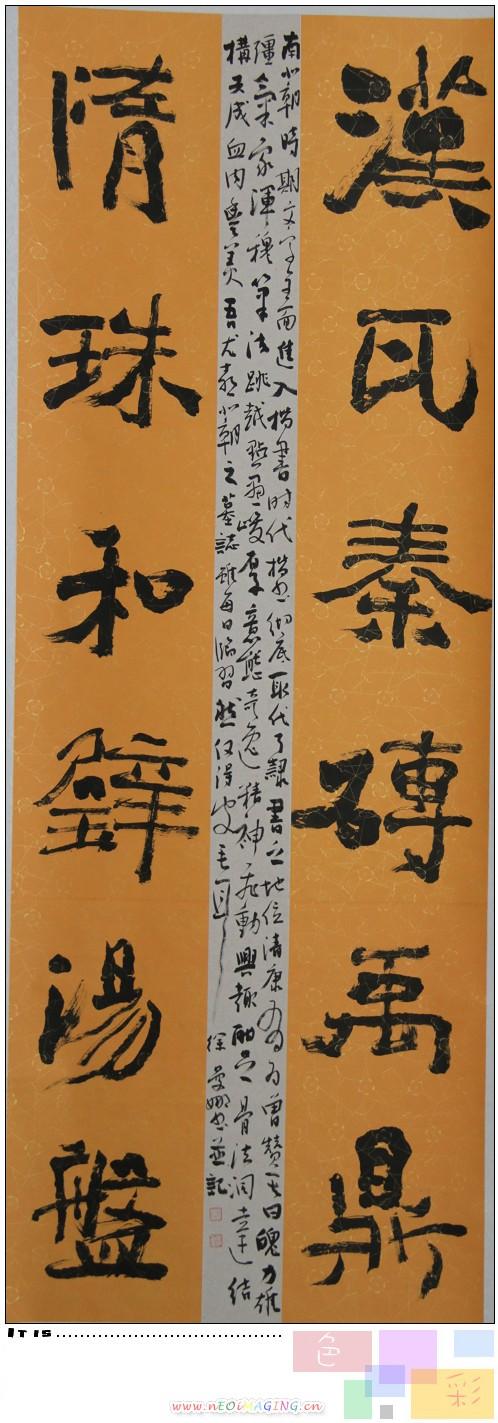 漢瓦秦磚禹鼎
南北朝時期文字全面進入楷書時代楷书彻底取代了隸書之地位清康有為曾贊其曰魄力雄
彊氣象渾穆筆法跳越點畫峻厚意態奇逸精神飛動興趣酣足骨法洞達結
構天成血肉豐美吾尤喜北朝之墓誌雖每日临習然仅得皮毛耳
徐曼娜书並記
隋珠和璧湯盤
It is
色彩
www.nEOiMAGING.cn